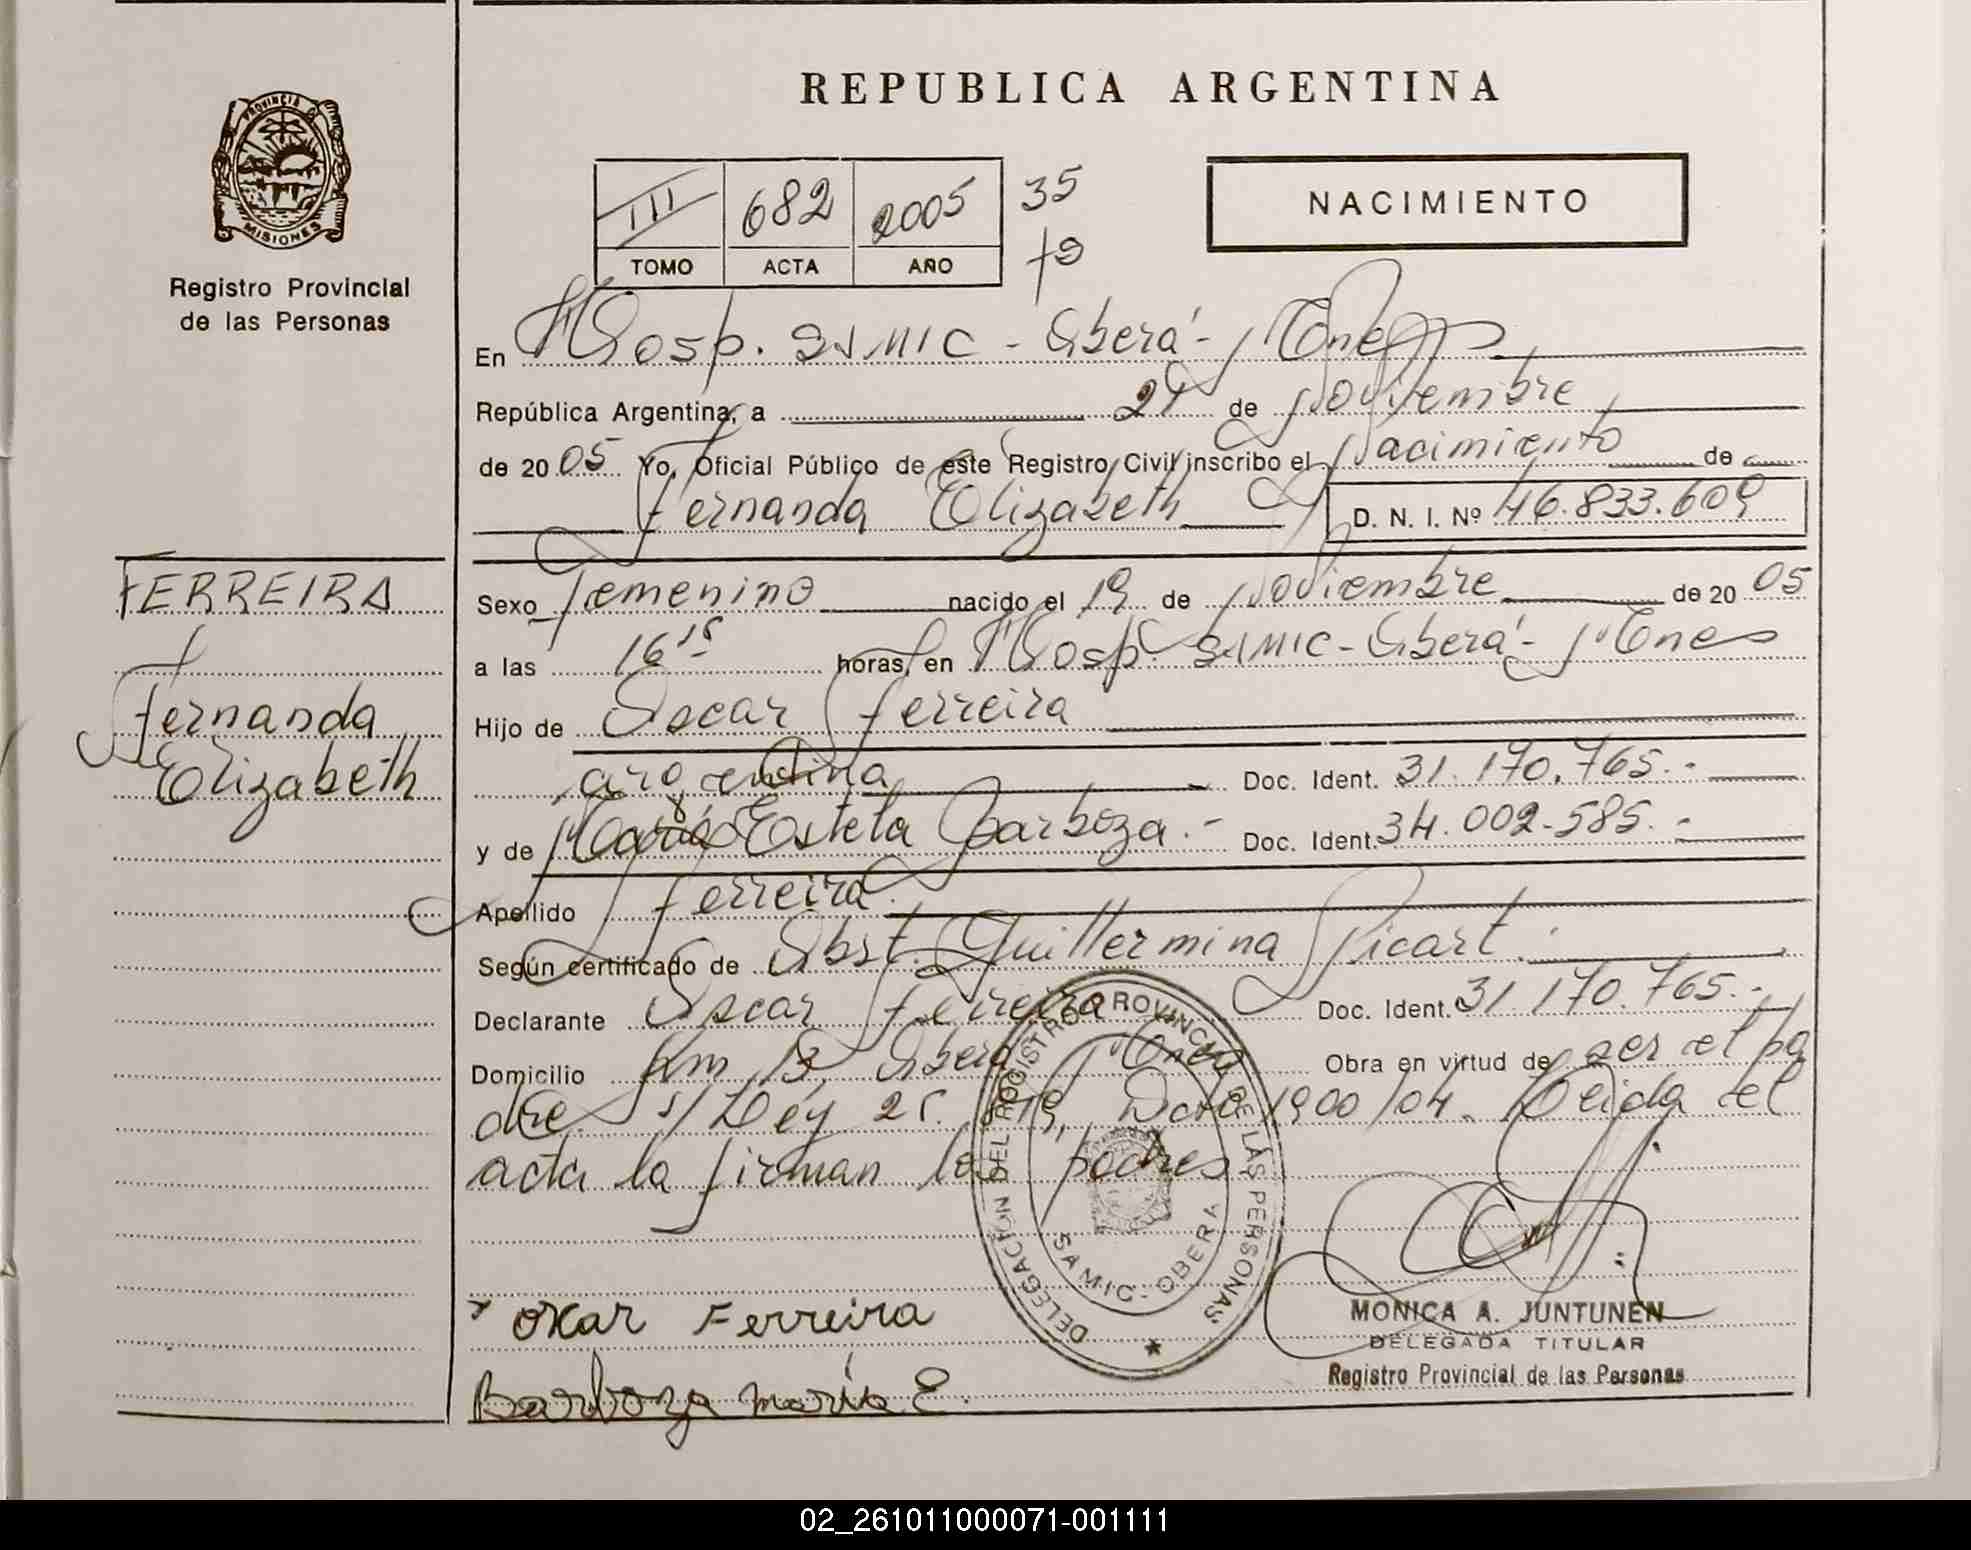 REPUBLICA ARGENTINA
PROVINCIA D MISIONES
Registro Provincial
de las Personas
III 682 2005 35
TOMO ACTA AÑO
NACIMIENTO
En Hosp. SAMIC - Oberá - Mnes
República Argentina, a 21 de Noviembre
de 2005 Yo, Oficial Público de este Registro Civil inscribo el Nacimiento de
Fernanda Elizabeth D. N. I. Nº 46.833.609
FERREIRA
Fernanda
Elizabeth
Sexo femenino nacido el 19 de Noviembre de 2005
a las 16 15 horas, en Hosp. SAMIC - Oberá - Mnes
Hijo de Oscar Ferreira
argentina Doc. Ident. 31.170.765.-
y de María Estela Barboza.- Doc. Ident. 34.002.585.-
Apellido Ferreira.
Según certificado de Obst. Guillermina Picart.
Declarante Oscar Ferreira Doc. Ident. 31.170.765.-
Domicilio Km 13, Oberá, Mnes Obra en virtud de ser el pa
dre s/ Ley 25. 819, Dcto 1900/04. Leida el
acta la firman los padres
DELEGACION DEL REGISTRO PROVINCIAL DE LAS PERSONAS
SAMIC - OBERA
Oscar Ferreira
Barboza María E.
MONICA A. JUNTUNEN
DELEGADA TITULAR
Registro Provincial de las Personas
02_261011000071-001111